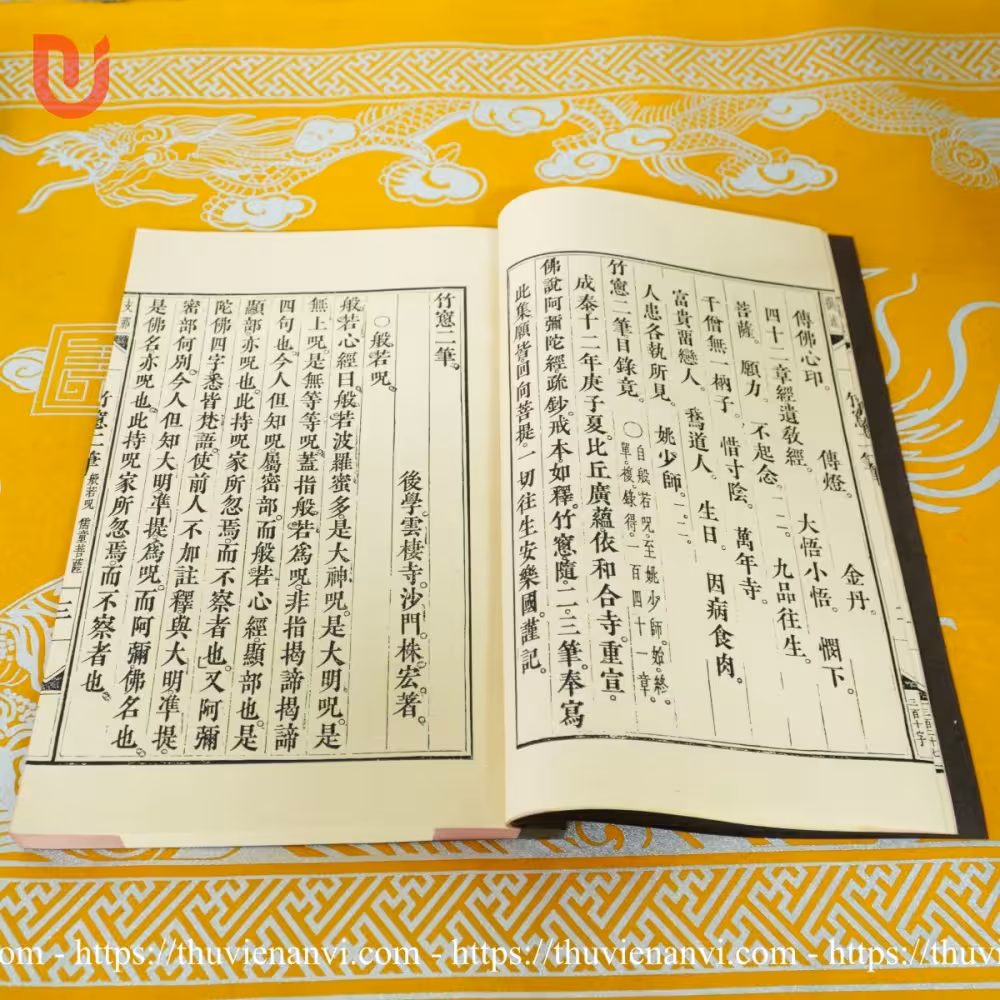 傳佛心印。 傳燈。 金丹。
四十二章經遺教經。 大悟小悟。 憫下。
菩薩。 願力。 不起念。一。二。 九品往生。
千僧無一柄子。 惜寸陰。 萬年寺。
富貴畱戀人。 蝥道人。 生日。 因病食肉。
人患各執所見。 姚少師。一。二。
竹窻二筆目錄竟。 ○
自般若呪。至姚少師。始。終。
單。複。錄得。一百四十一章。
成泰十二年庚子夏。比丘廣蘊。依和合寺。重宣。
佛說阿彌陀經疏鈔。戒本如釋。竹窻隨。二。三筆奉寫
此集願皆回向菩提。一切往生安樂國。謹記。
三百十字
竹窻二筆。
後學。雲棲寺。沙門。袾宏。著。
○般若呪。
般若心經曰。般若波羅蜜多是大神呪。是大明呪。是
無上呪。是無等等呪。蓋指般若爲呪。非指揭諦揭諦
四句也。今人但知呪屬密部。而般若心經。顯部也。是
顯部亦呪也。此持呪家所忽焉。而不察者也。又阿彌
陀佛四字悉皆梵語。使前人不加註釋與大明準提
密部何別。今人但知大明準提爲呪。而阿彌佛名也。
是佛名亦呪也。此持呪家所忽焉。而不察者也。
竹窻二筆 般若呪 儒童菩薩 三
om - https://thuvienanvi.com - https://thuvienanvi.com - https://thuvi